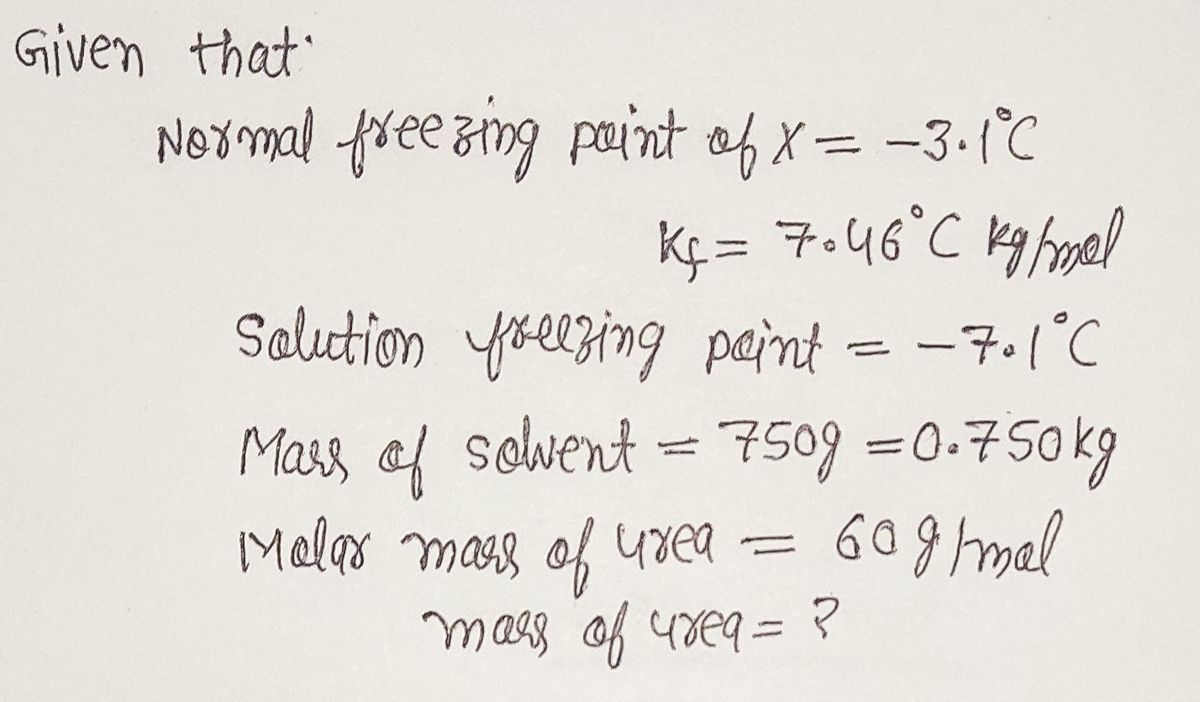 Given that:
Normal freezing point of X = -3.1°C
Kf = 7.46°C kg/mol
Solution freezing point = -7.1°C
Mass of solvent = 750g = 0.750kg
Molar mass of urea = 60g/mol
mass of urea = ?